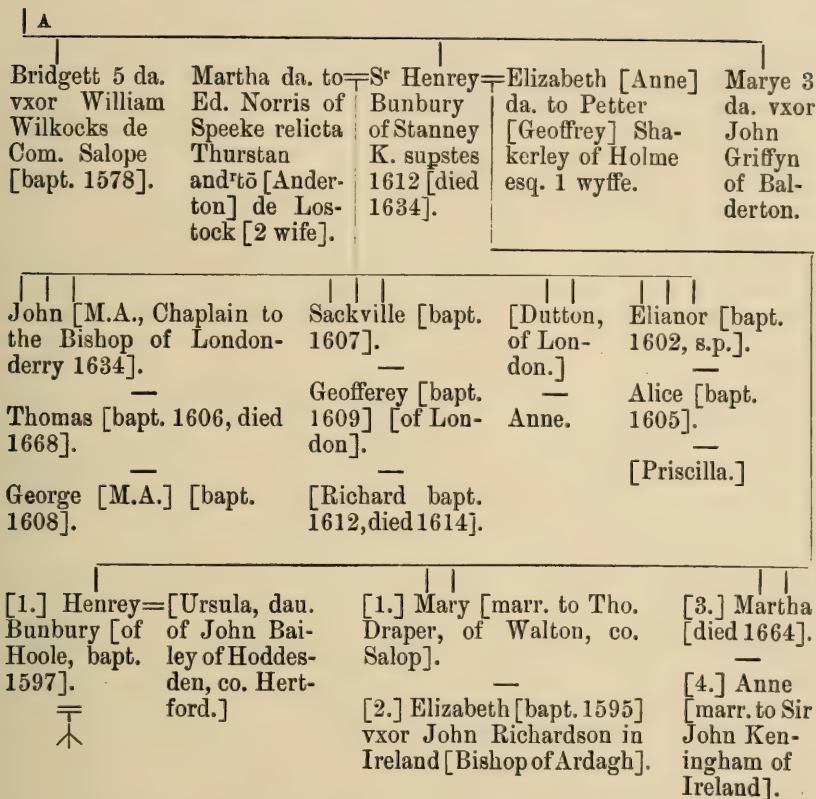 A
Bridgett 5 da.
vxor William
Wilkocks de
Com. Salope
[bapt. 1578].
Martha da. to
Ed. Norris of
Speeke relicta
Thurstan
andʳtō [Ander-
ton] de Los-
tock [2 wife].
=Sʳ Henrey=
Bunbury
of Stanney
K. supstes
1612 [died
1634].
Elizabeth [Anne]
da. to Petter
[Geoffrey] Sha-
kerley of Holme
esq. 1 wyffe.
Marye 3
da. vxor
John
Griffyn
of Bal-
derton.
John [M.A., Chaplain to
the Bishop of London-
derry 1634].
—
Thomas [bapt. 1606, died
1668].
—
George [M.A.] [bapt.
1608].
Sackville [bapt.
1607].
—
Geofferey [bapt.
1609] [of Lon-
don].
—
[Richard bapt.
1612, died 1614].
[Dutton,
of Lon-
don.]
—
Anne.
Elianor [bapt.
1602, s.p.].
—
Alice [bapt.
1605].
—
[Priscilla.]
[1.] Henrey=
Bunbury [of
Hoole, bapt.
1597].
[Ursula, dau.
of John Bai-
ley of Hoddes-
den, co. Hert-
ford.]
[1.] Mary [marr. to Tho.
Draper, of Walton, co.
Salop].
—
[2.] Elizabeth [bapt. 1595]
vxor John Richardson in
Ireland [Bishop of Ardagh].
[3.] Martha
[died 1664].
—
[4.] Anne
[marr. to Sir
John Ken-
ingham of
Ireland].